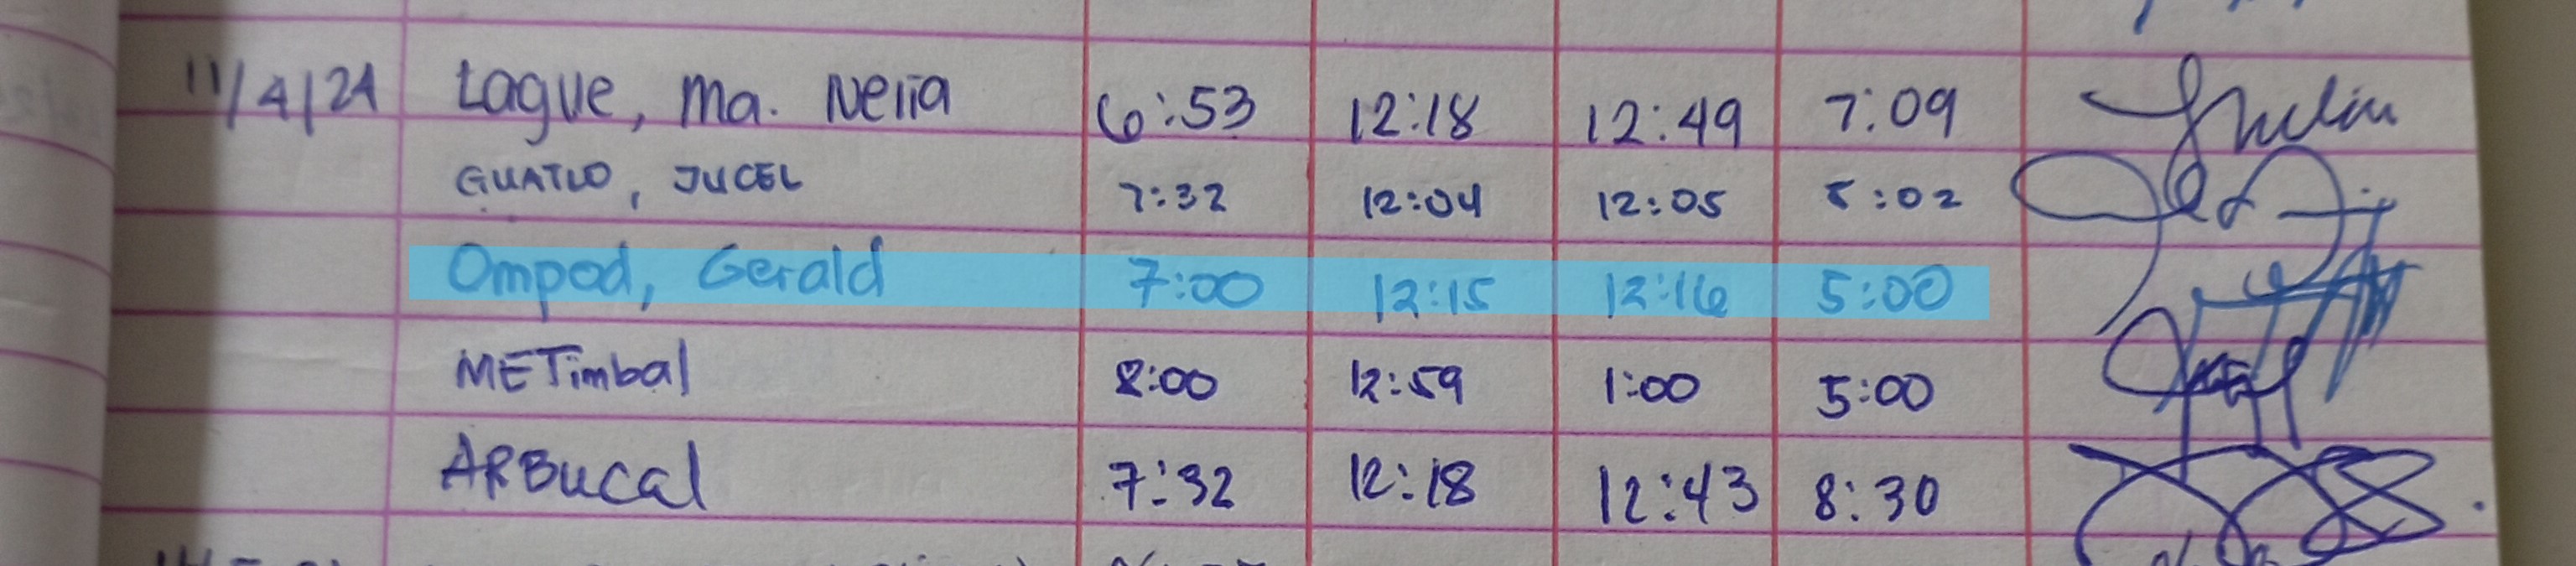 11/4/24 Lague, Ma. Nelia 6:53 12:18 12:49 7:09
GUATLO, JUCEL 7:32 12:04 12:05 5:02
Ompod, Gerald 7:00 12:15 12:16 5:00
METimbal 8:00 12:59 1:00 5:00
ARBucal 7:32 12:18 12:43 8:30